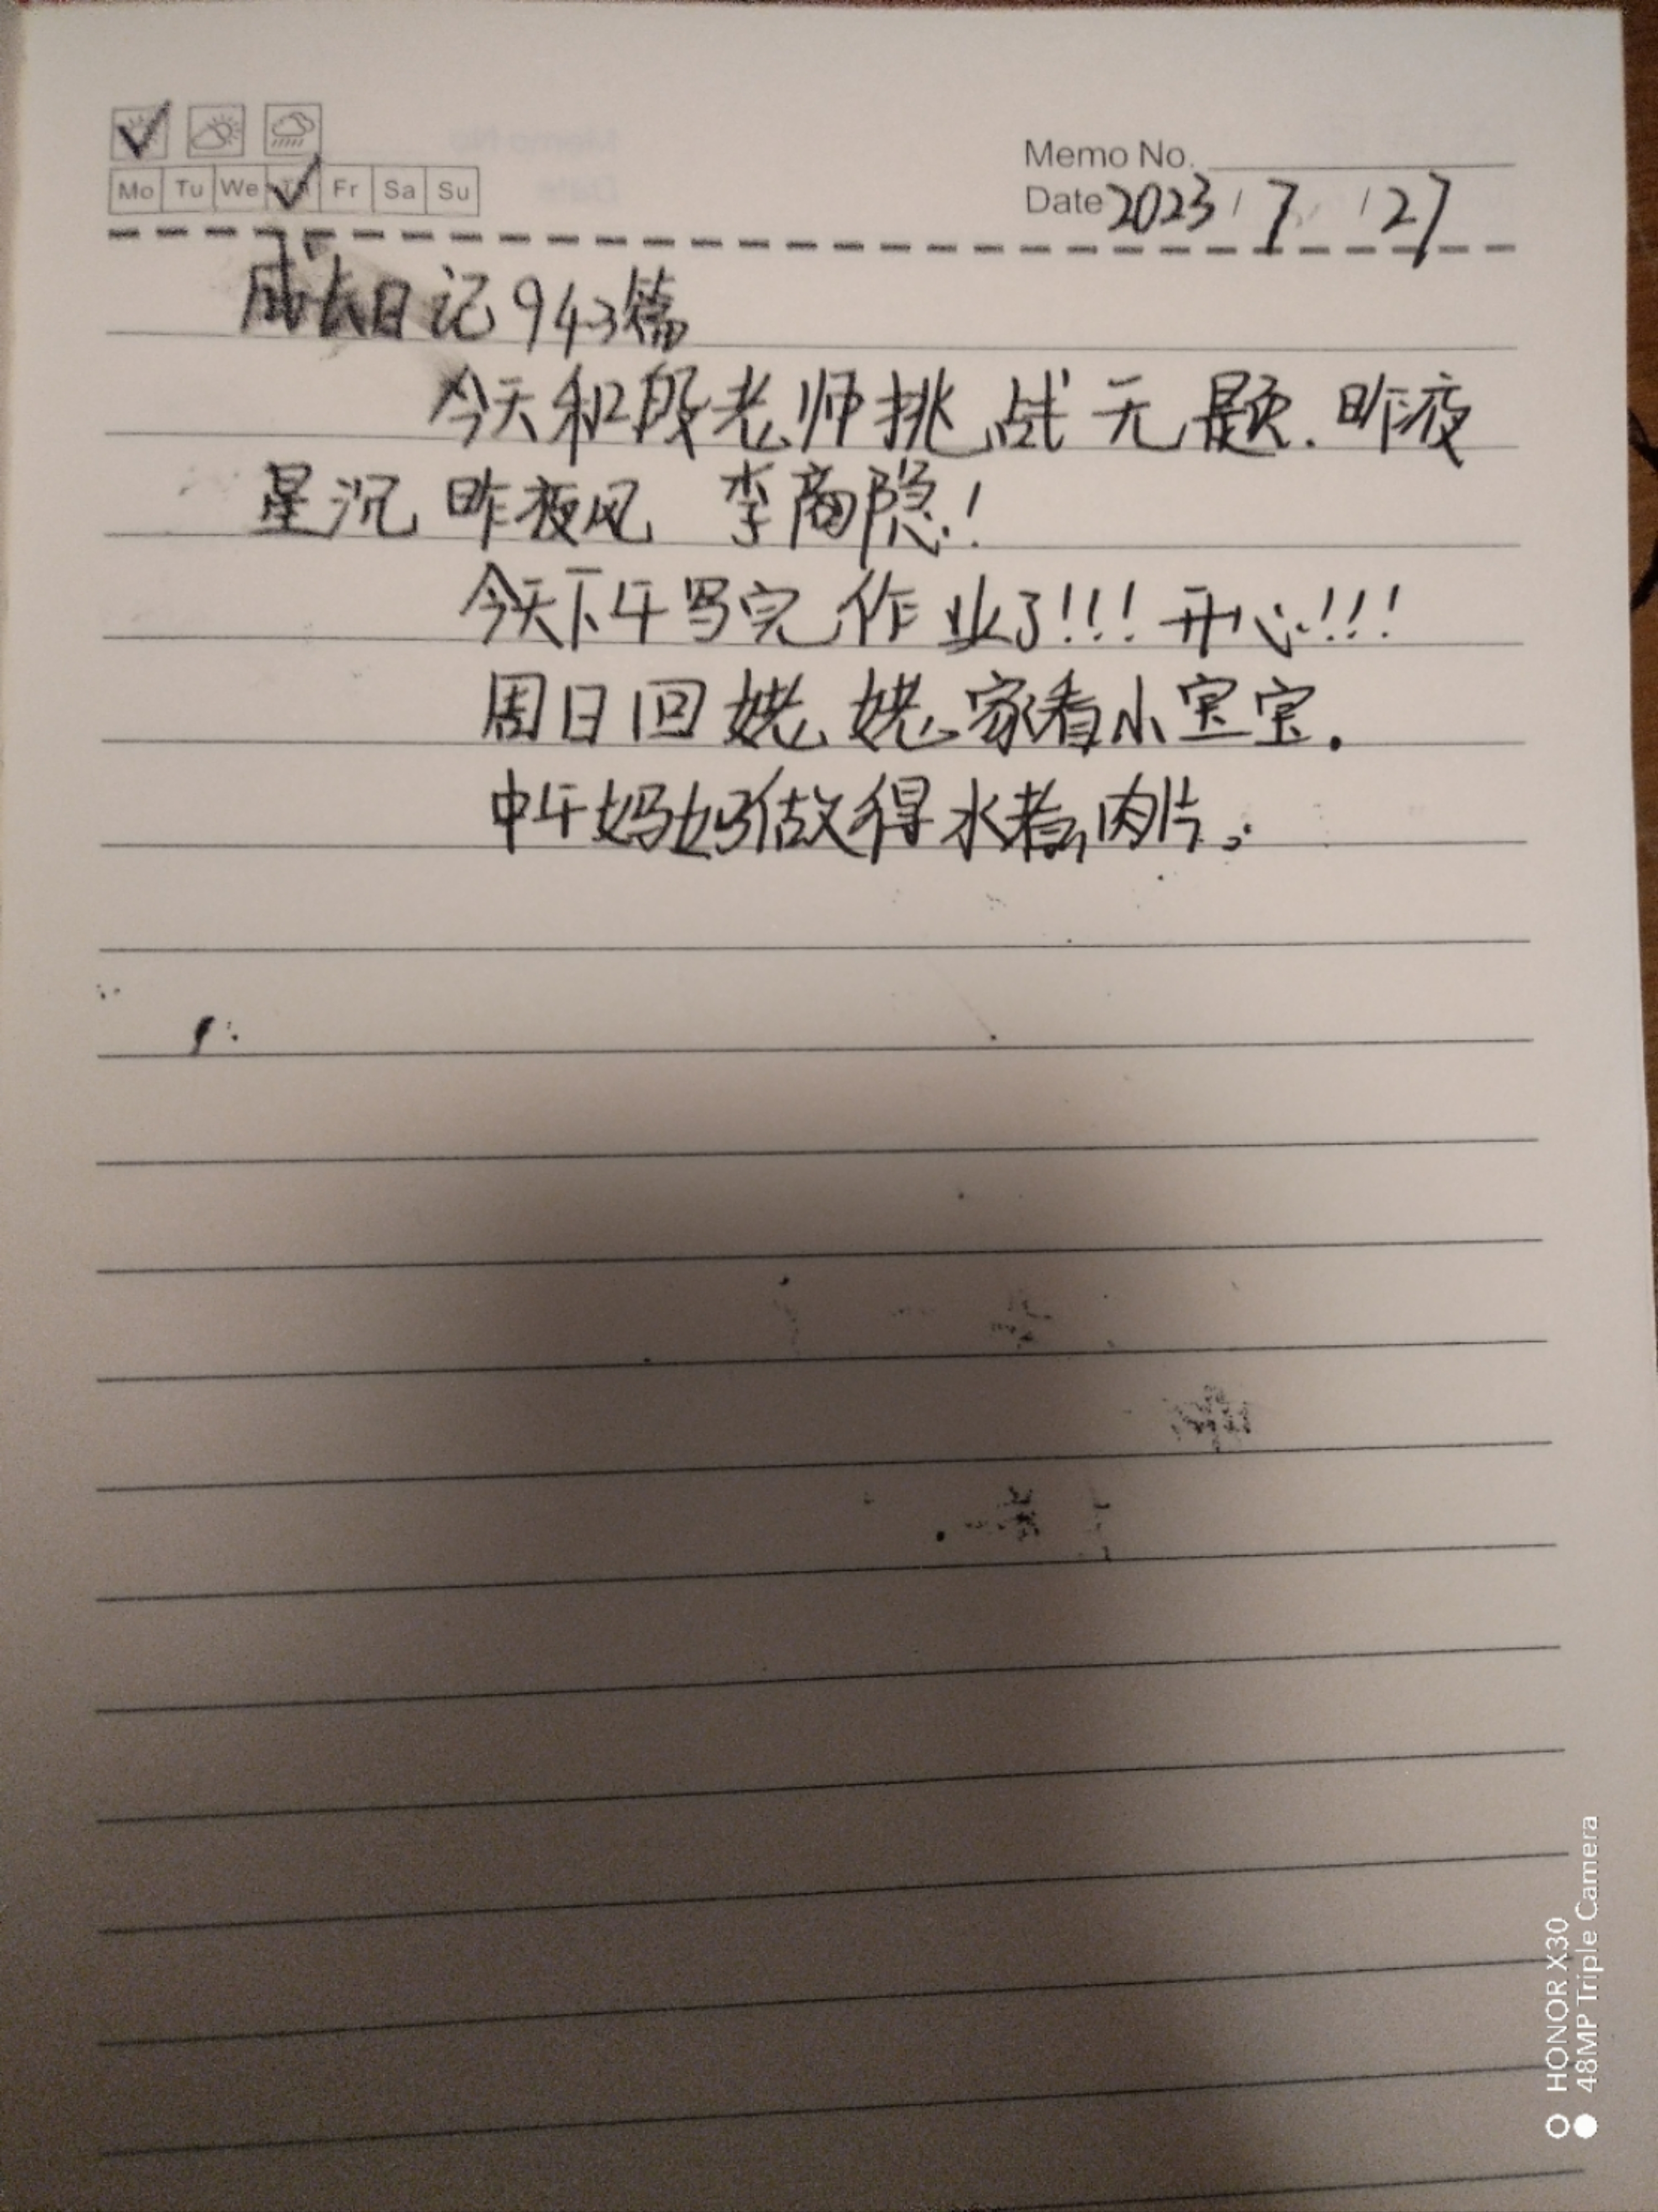 Memo No.
Mo Tu We Th Fr Sa Su
Date 2023 / 7 / 27
成长日记943篇
今天和段老师挑战无题.昨夜
星沉昨夜风 李商隐!
今天下午写完作业了!!!开心!!!
周日回姥姥家看小宝宝.
中午妈妈做得水煮肉片。
HONOR X30
48MP Triple Camera